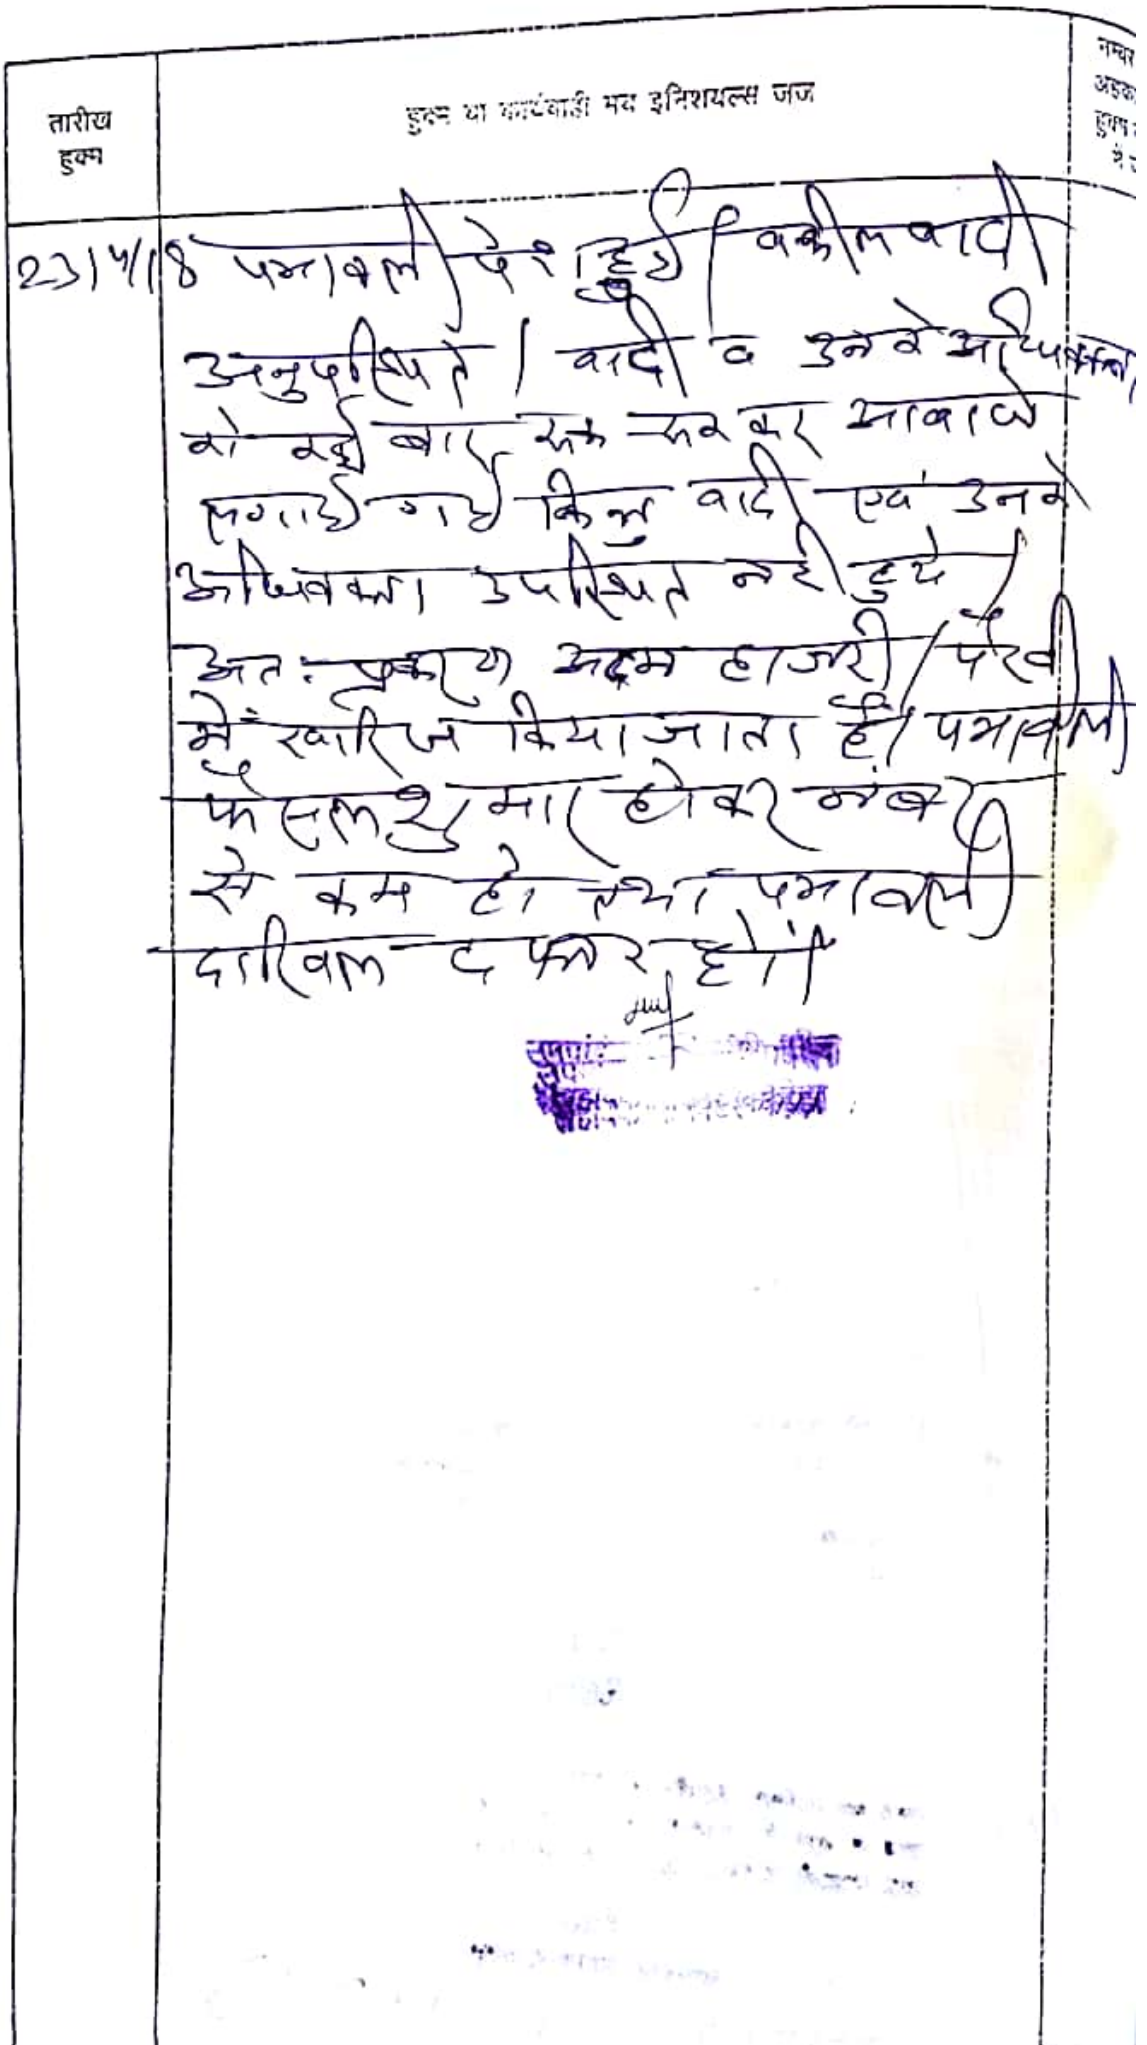 तारीख
हुक्म
हुक्म या कार्यवाही मय इनिशियल्स जज
नम्बर
23/4/18 पत्रावली पेश हुई। वकील वादी
अनुपस्थित। वादी व उनके अधिवक्ता
को कई बार रूक रूक कर आवाजे
लगाई गई किन्तु वादी एवं उनके
अधिवक्ता उपस्थित नही हुये।
अतः प्रकरण अदम हाजरी/पैरवी
में खारिज किया जाता है। पत्रावली
फैसल शुमार होकर नंबर
से कम हो तथा पत्रावली
दाखिल दफ्तर हो।